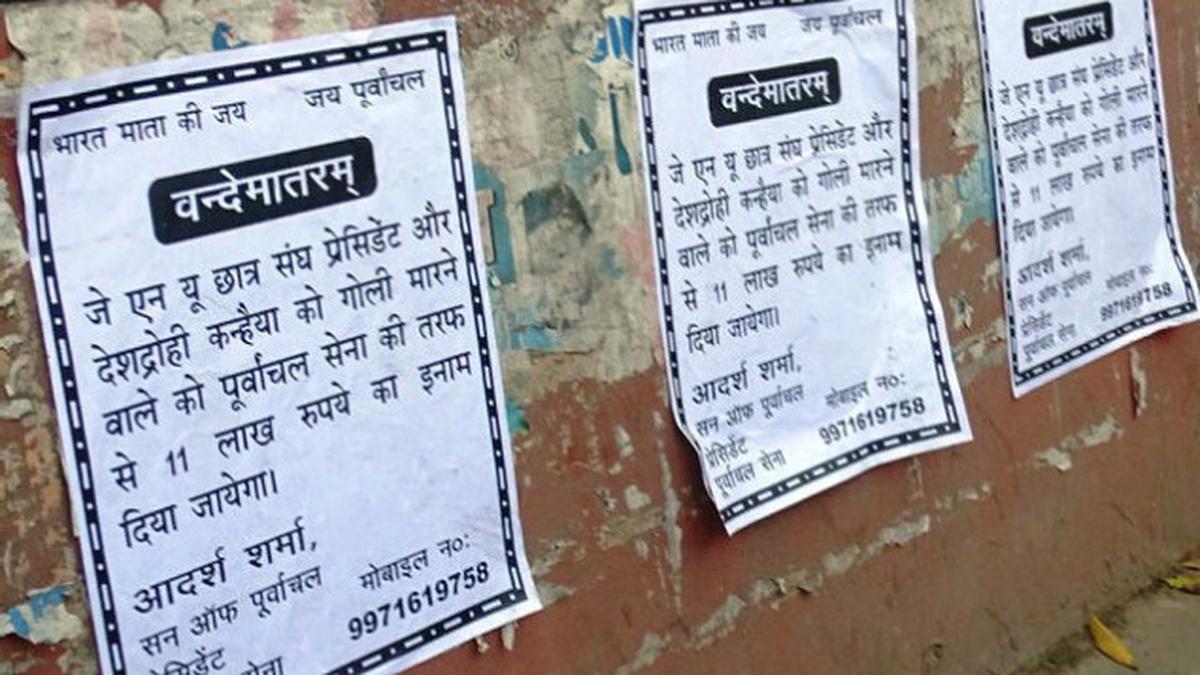 भारत माता की जय जय पूर्वांचल
वन्देमातरम्
जे एन यू छात्र संघ प्रेसिडेंट और
देशद्रोही कन्हैया को गोली मारने
वाले को पूर्वांचल सेना की तरफ
से 11 लाख रुपये का इनाम
दिया जायेगा।
आदर्श शर्मा,
सन ऑफ पूर्वांचल मोबाइल न०:
9971619758
प्रेसिडेंट
सेना
भारत माता की जय जय पूर्वांचल
वन्देमातरम्
जे एन यू छात्र संघ प्रेसिडेंट और
देशद्रोही कन्हैया को गोली मारने
वाले को पूर्वांचल सेना की तरफ
से 11 लाख रुपये का इनाम
दिया जायेगा।
आदर्श शर्मा,
सन ऑफ पूर्वांचल मोबाइल न०:
प्रेसिडेंट 9971619758
पूर्वांचल सेना
वन्देमातरम्
जे एन यू छात्र संघ प्रेसिडेंट और
देशद्रोही कन्हैया को गोली मारने
वाले को पूर्वांचल सेना की तरफ
से 11 लाख रुपये का इनाम
दिया जायेगा।
आदर्श शर्मा,
सन ऑफ पूर्वांचल मोबाइल न०:
प्रेसिडेंट 9971619758
पूर्वांचल सेना